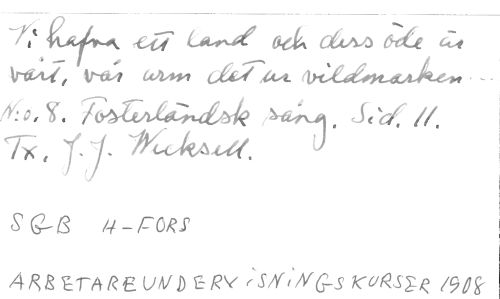 Vi hafva ett land och dess öde är
vårt, vår arm det ur vildmarken...
N:o. 8. Fosterländsk sång. Sid. 11.
Tx. J. J. Wecksell.
SGB H-FORS
ARBETAREUNDERVISNINGSKURSER 1908